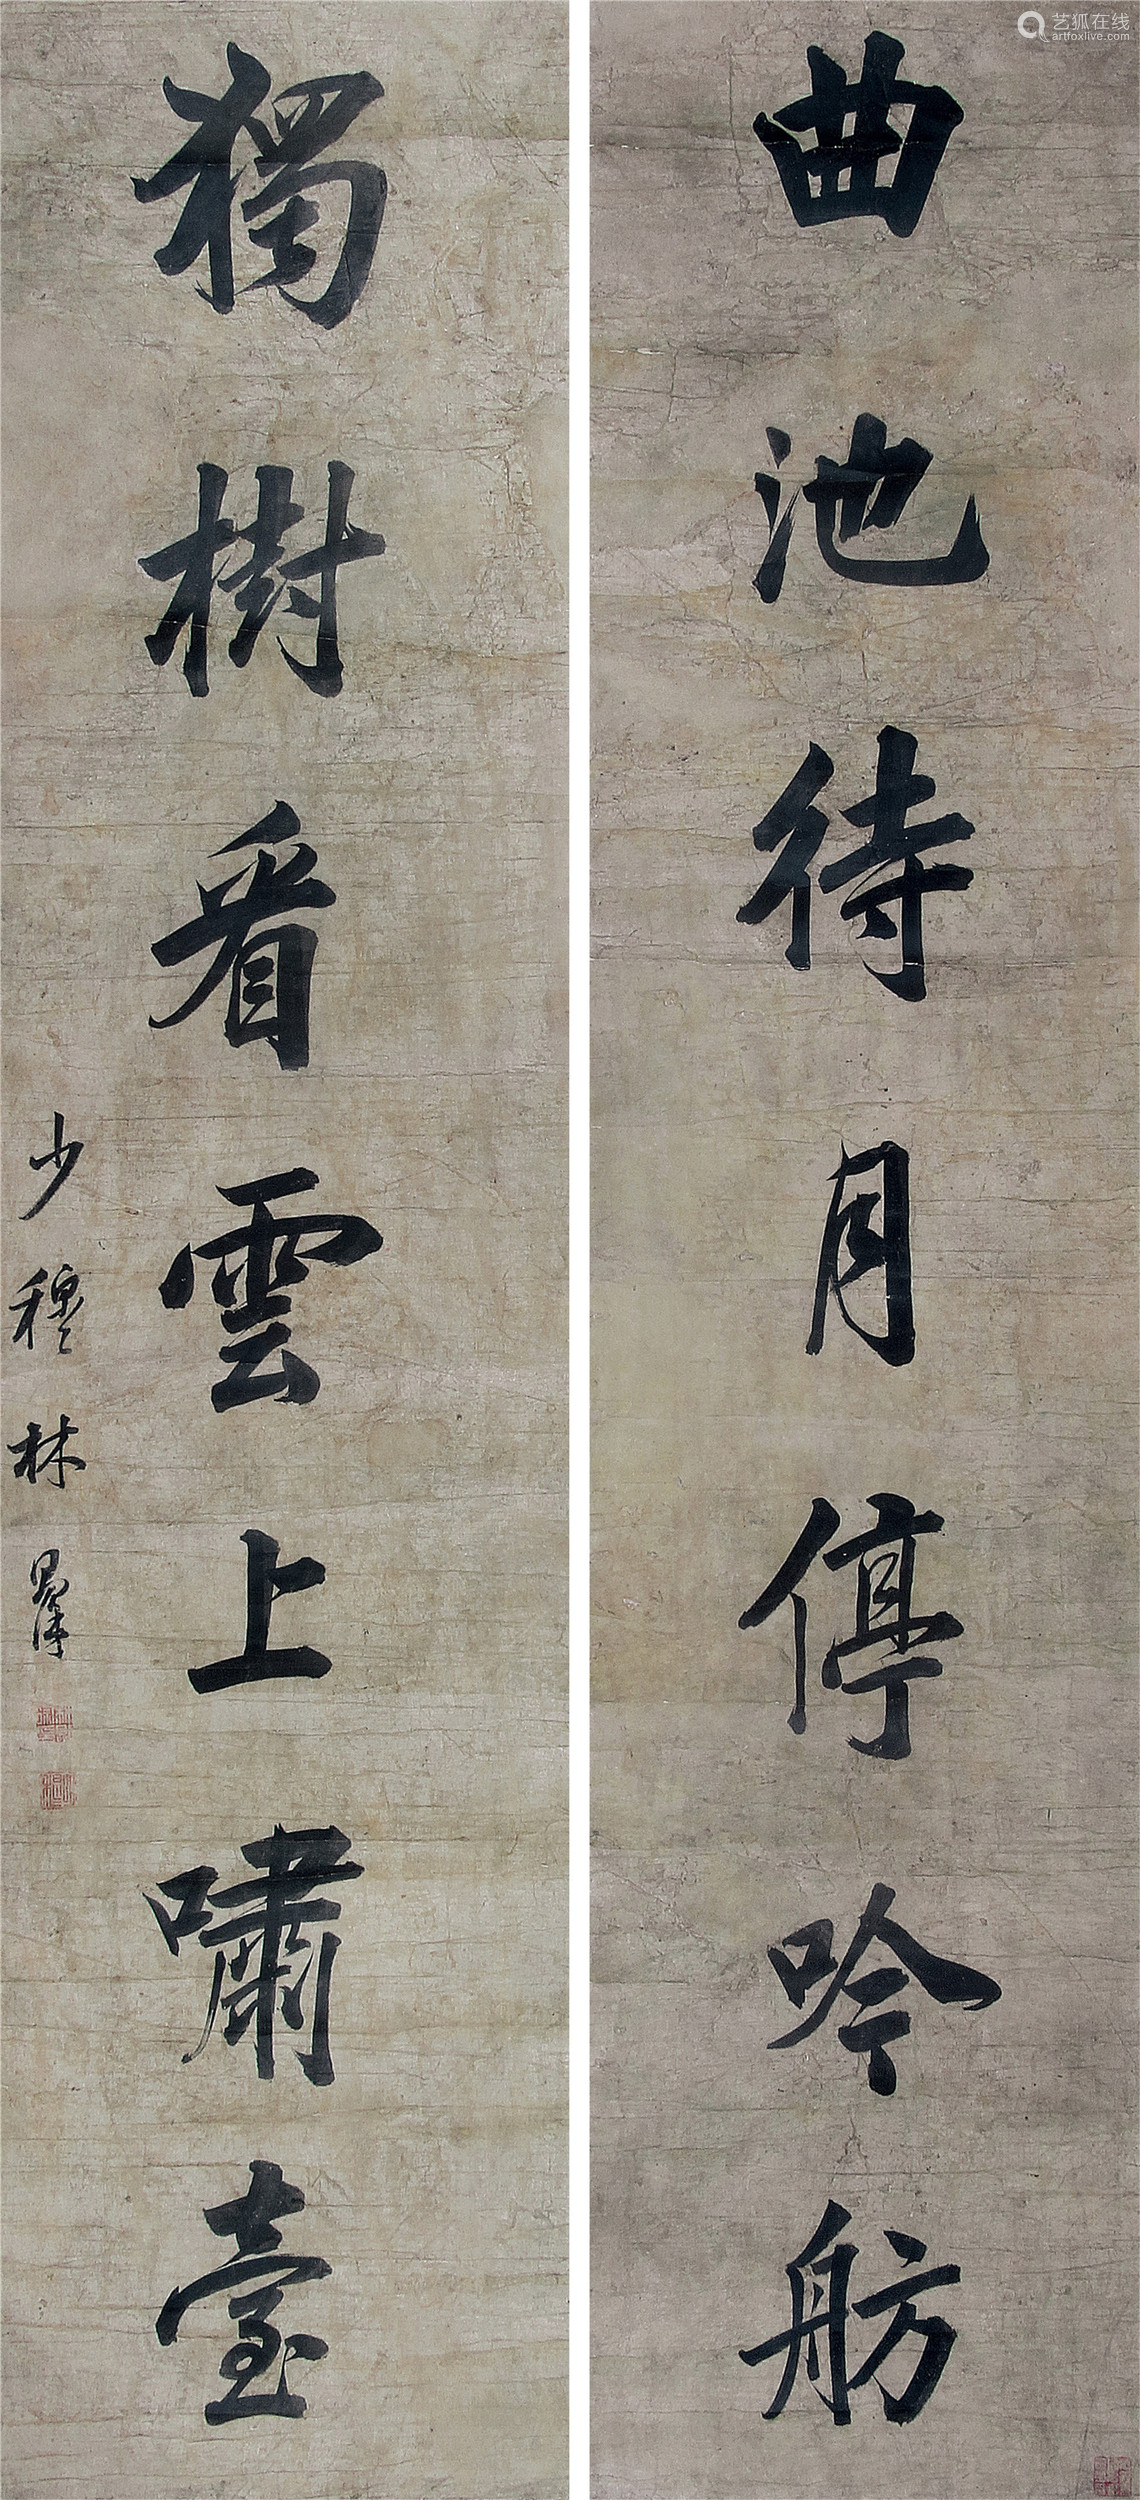 曲池待月停吟舫
獨樹看雲上嘯臺
少穆林則徐
艺狐在线
artfoxlive.com